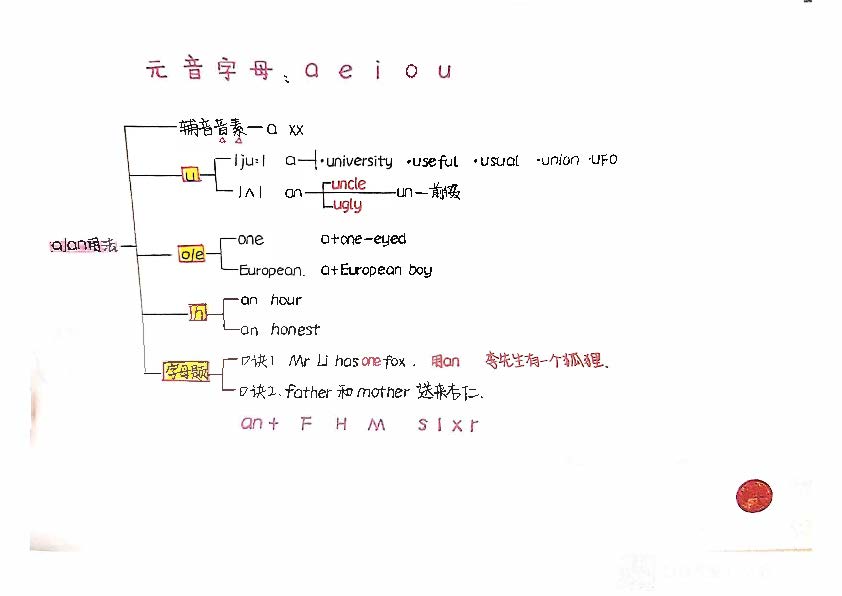 元音字母、a e i o u
辅音音素—a xx
u
/ju:/ a ·university ·useful ·usual ·union ·UFO
/ʌ/ an uncle un—前缀
ugly
a/an用法
o/e
one a+one-eyed
European. a+European boy
h
an hour
an honest
字母题
口诀1 Mr Li has one fox. 用an 李先生有一个狐狸.
口诀2. father 和 mother 送来杏仁.
an+ F H M s l x r